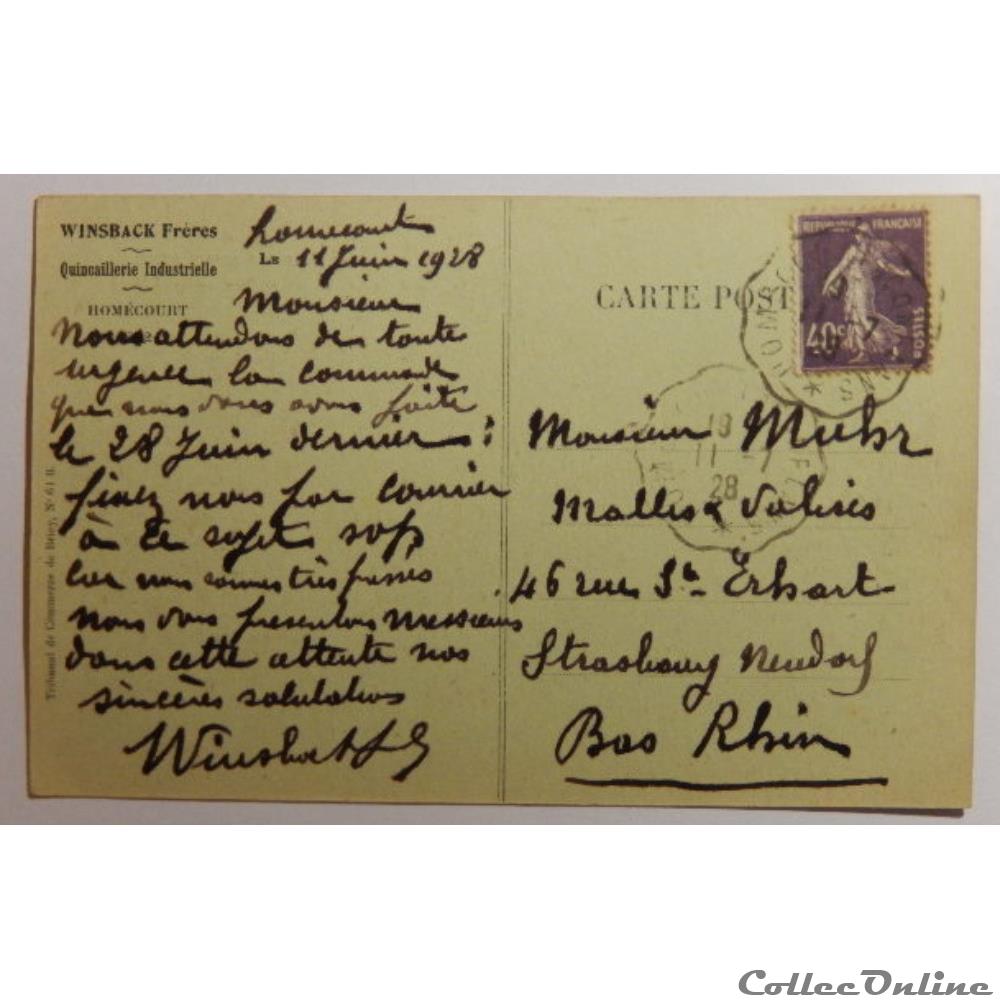 WINSBACK Frères
Quincaillerie Industrielle
HOMÉCOURT
homecourt
LE 11 Juin 1928
Monsieur
Nous attendons de toute
urgence la commande
que nous vous avons faite
le 28 Juin dernier :
fixez nous par courrier
à ce sujet
car nous sommes très presses
nous vous presentons messieurs
dans cette attente nos
sincères salutations
Tribunal de Commerce de Briey, N° 61 B.
CARTE POST
RÉPUBLIQUE FRANÇAISE
40c
POSTES
18
11 -
28
Monsieur Muhr
Malles & Valises
46 rue St Erhart
Strasbourg Neudorf
Bas Rhin
CollecOnline